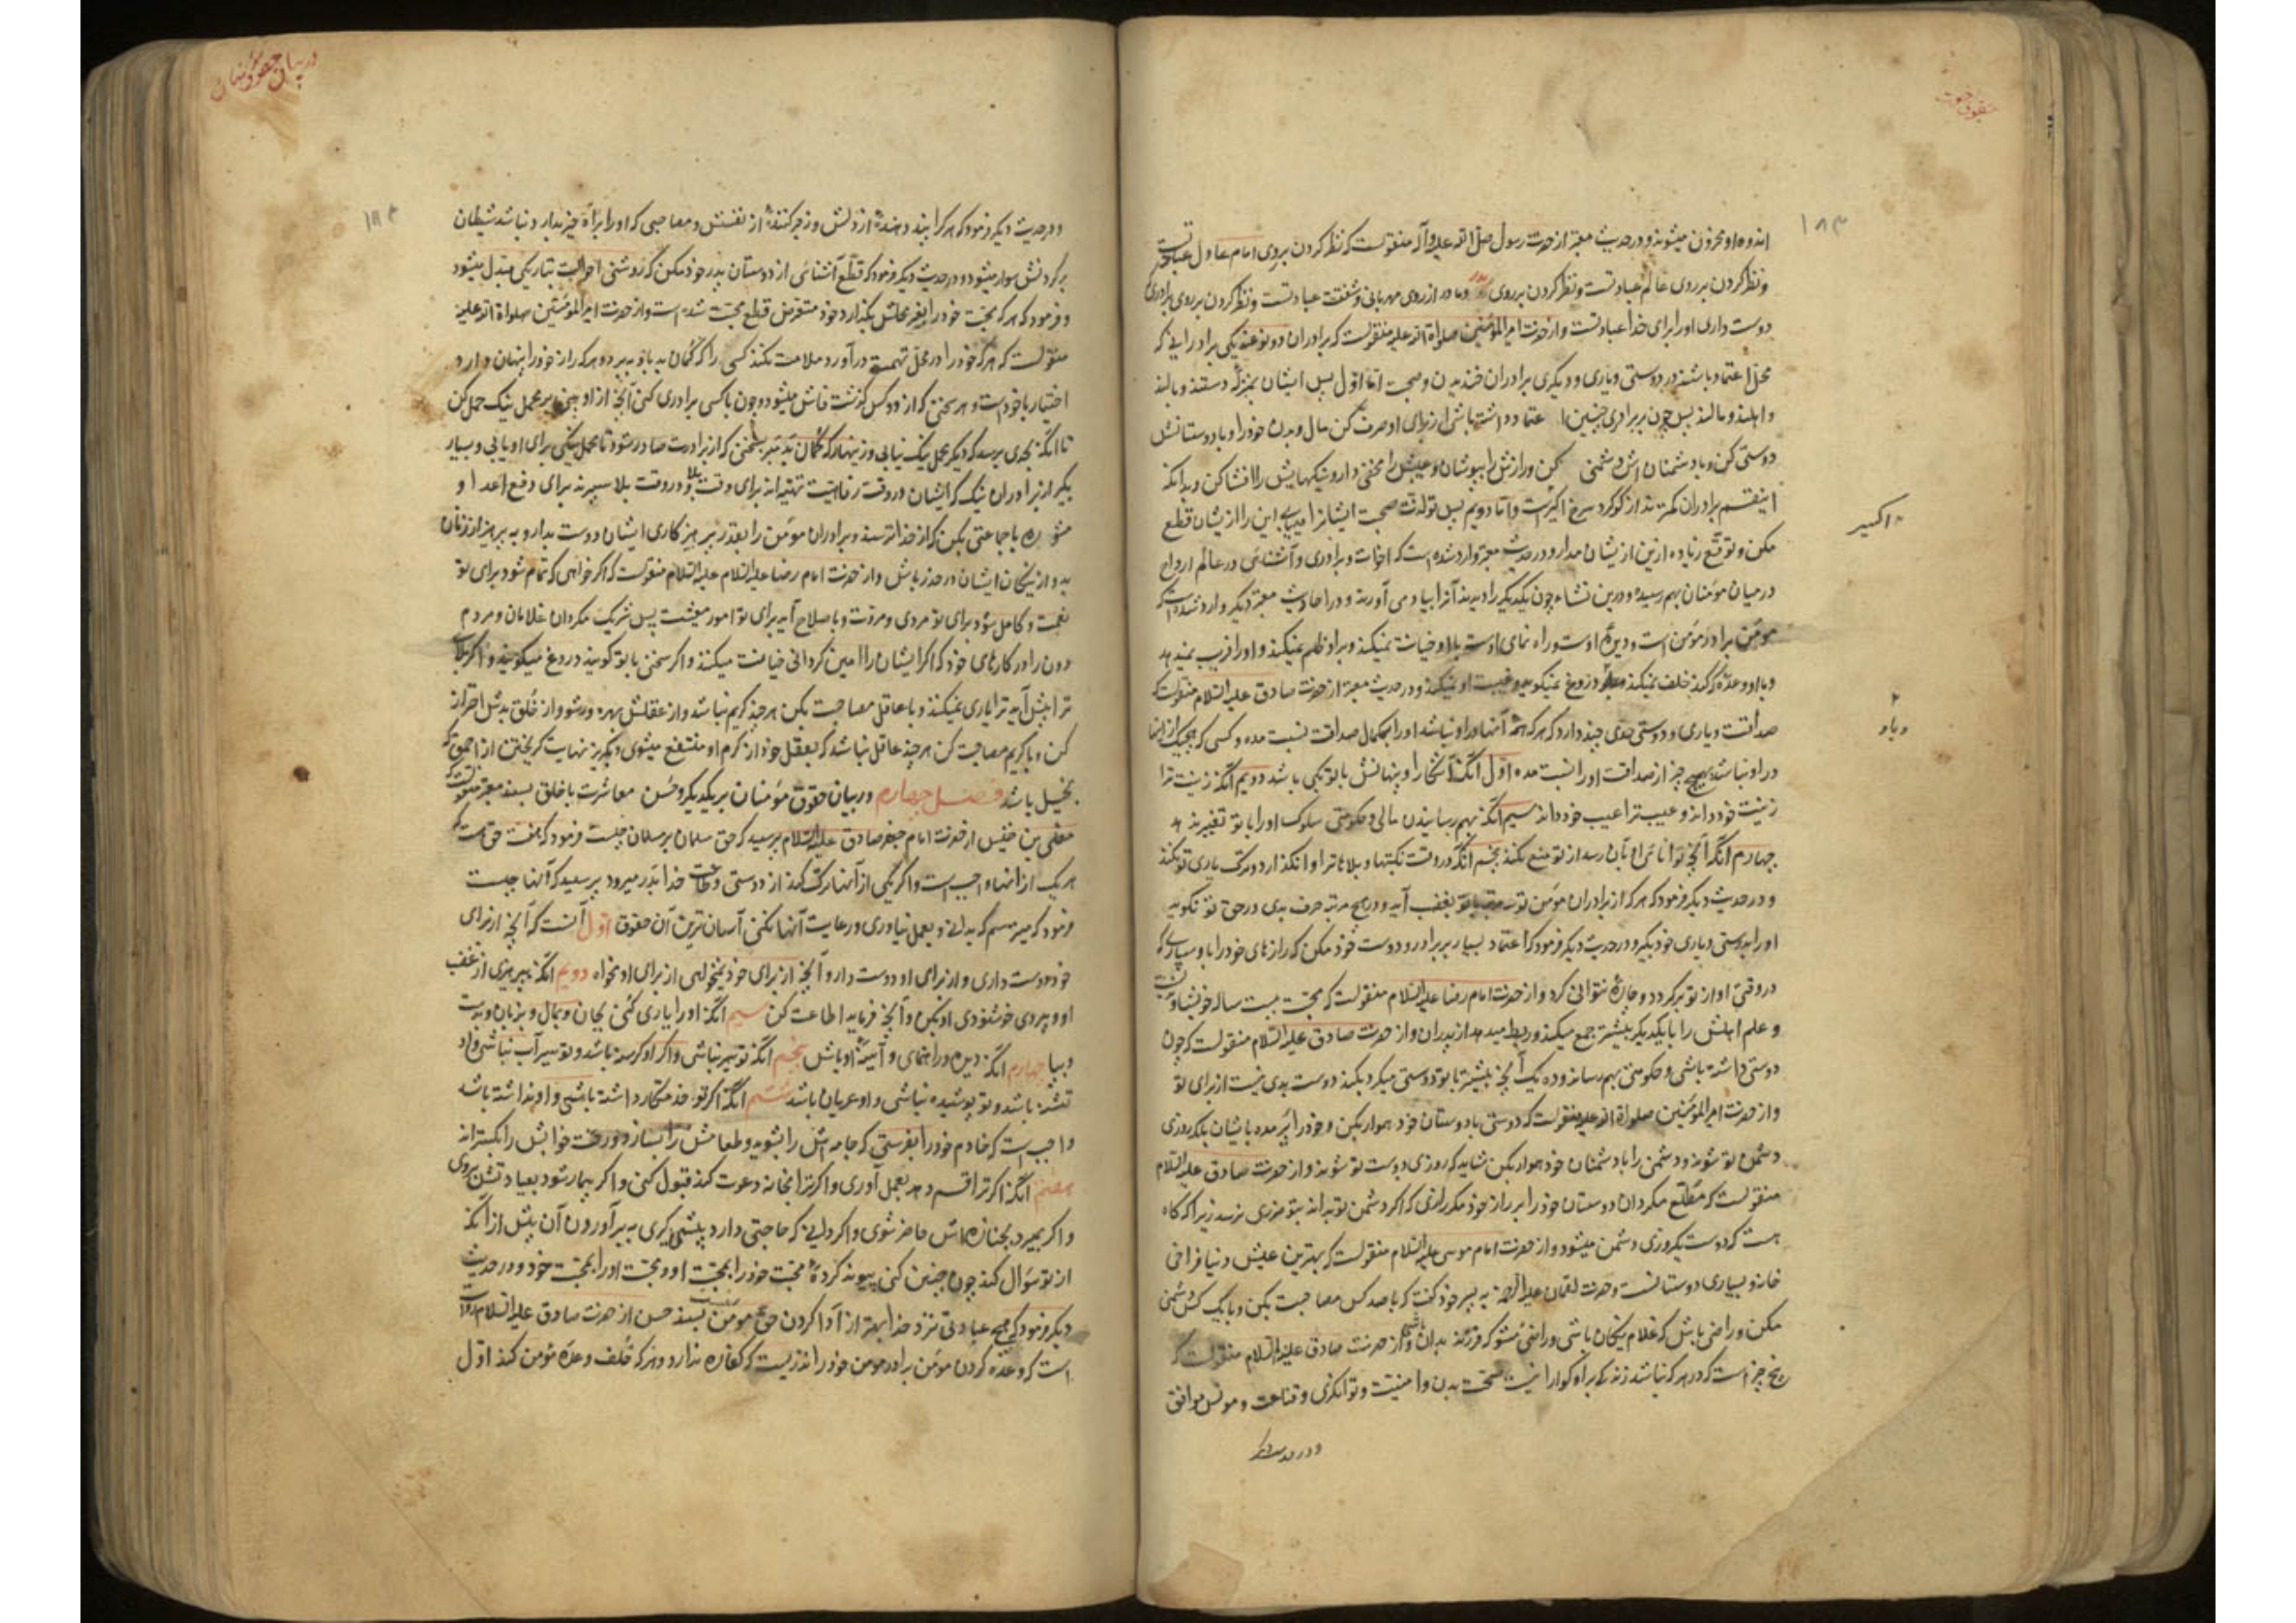 حقوق اخوت
۱۸۳
اندوه او محزون میشوند و در حدیث معتبر از حضرت رسول صلی الله علیه وآله منقولست که نظر کردن بروی امام عادل عبادتست
و نظر کردن بر روی عالم عبادتست و نظر کردن بر روی پدر و مادر از روی مهربانی و شفقت عبادتست و نظر کردن بر روی برادری که
دوست داری او را برای خدا عبادتست و از حضرت امیرالمؤمنین صلواة الله علیه منقولست که برادران دو نوعند یکی برادرانی که
محل اعتماد باشند در دوستی و یاری و دیگری برادران خندیدن و صحبت اما اول پس ایشان بمنزله دستند و بالند
و اهلند و مالند پس چون بر برادری چنین اعتماد داشته باشی از برای او صرف کن مال و بدن خود را و با دوستانش
دوستی کن و با دشمنان اش دشمنی کن و رازش را بپوشان و عیبش را مخفی دار و نیکیهایش را افشا کن و بدانکه
اینقسم برادران کمترند از گوگرد سرخ اکبرست و اما دویم پس تو لذت صحبت ایشانرا مییابی این را از یشان قطع
اکسیر
مکن و توقع زیاده ازین از یشان مدار و در حدیث معتبر وارد شده است که اخوات و برادری و آشنائی در عالم ارواح
در میان مؤمنان بهم رسیده و درین نشاء چون یکدیگر را دیدند آنرا بیاد می آورند و در احادیث معتبر دیگر وارد شده است که
مؤمن برادر مؤمن است و دیدهٔ اوست و راه نمای اوست با او خیانت نمیکند و بر او ظلم نمیکند و او را فریب نمیدهد
و با او وعدهٔ که کند خلف نمیکند و دروغ نمیگوید و غیبت او نمیکند و در حدیث معتبر از حضرت صادق علیه السلام منقولست که
وباو
صداقت و یاری و دوستی حدی چند دارد که هر که همهٔ آنها در او نباشد او را بکمال صداقت نسبت مده و کسی که هیچیک از آنها
در او نباشد بهیچ چیز از صداقت او را نسبت مده اول آنکه آشکارا و پنهانش با تو یکی باشد دویم آنکه زینت ترا
زینت خود داند و عیب ترا عیب خود داند سیم آنکه بهم رسانیدن مالی و حکومتی سلوک او را با تو تغییر ندهد
چهارم آنکه آنچه توانائی او بآن رسد از تو منع نکند پنجم آنکه در وقت نکبتها و بلاها ترا وا نگذارد و ترک یاری تو نکند
و در حدیث دیگر فرمود که هر که از برادران مؤمن تو سه مرتبه با تو بغضب آید و در هیچ مرتبه حرف بدی در حق تو نگوید
او را بدوستی و یاری خود بگیر و در حدیث دیگر فرمود که اعتماد بسیار بر برادر و دوست خود مکن که رازهای خود را باو سپاری که
در وقتی او از تو برگردد و چارهٔ نتوانی کرد و از حضرت امام رضا علیه السلام منقولست که محبت بیست ساله خویشاوندیست
و علم اهلش را با یکدیگر بیشتر جمع میکند و ربط میدهد از پدران و از حضرت صادق علیه السلام منقولست که چون
دوستی داشته باشی و حکومتی بهم رساند و ده یک آنچه بیشتر با تو دوستی میکرد بکند دوست بدی نیست از برای تو
و از حضرت امیر المؤمنین صلواة الله علیه منقولست که دوستی با دوستان خود هموار بکن و خود را پر مده بایشان بلکه روزی
دشمن تو شوند و دشمنی را با دشمنان خود هموار بکن شاید که روزی دوست تو شوند و از حضرت صادق علیه السلام
منقولست که مطلع مگردان دوستان خود را بر راز خود مگر رازی که اگر دشمن تو بداند بتو ضرری نرسد زیرا که گاه
هست که دوست یکروزی دشمن میشود و از حضرت امام موسی علیه السلام منقولست که بهترین عیش دنیا فراخی
خانه و بسیاری دوستانست و حضرت لقمان علیه الرحمه به پسر خود گفت که با صد کس مصاحبت بکن و با یک کس دشمنی
مکن و راضی باش که غلام نیکان باشی و راضی مشو که فرزند بدان باشی و از حضرت صادق علیه السلام منقولست که
پنج چیز است که در هر که نباشد زندگی بر او گوارا نیست صحت بدن و امنیت و توانگری و قناعت و مونس موافق
و در حدیث دیگر
در بیان حقوق مؤمنان
۱۸۴
و در حدیث دیگر فرمود که هر که را پند دهندهٔ از دلش و زجر کنندهٔ از نفسش و مصاحبی که او را براه خیر بدارد نباشد شیطان
بر گردنش سوار میشود و در حدیث دیگر فرمود که قطع آشنائی از دوستان پدر خود مکن که روشنی احوالت بتاریکی مبدل میشود
و فرمود که هر که محبت خود را بغیر محلش بگذارد خود متعرض قطع محبت شده است و از حضرت امیر المؤمنین صلواة الله علیه
منقولست که هر که خود را در محل تهمت درآورد ملامت نکند کسی را که گمان بد باو ببرد و هر که راز خود را پنهان دارد
اختیار با خود است و هر سخنی که از دو کس گذشت فاش میشود و چون با کسی برادری کنی آنچه از او بینی بر محمل نیک حمل کن
تا آنکه بحدی برسد که دیگر محمل نیک نیابی و زینهار که گمان بد مبر بسخنی که از برادرت صادر شود تا محمل نیکی برای او یابی و بسیار
بگیر از برادران نیک که ایشان در وقت رفاهیت تهیه اند برای وقت بلا و در وقت بلا سپرند برای دفع اعدا و
مشوره با جماعتی بکن که از خدا ترسند و برادران مؤمن را بقدر پرهیزکاری ایشان دوست بدار و به پرهیز از زنان
بد و از نیکان ایشان در حذر باش و از حضرت امام رضا علیه السلام علیه السلام منقولست که اگر خواهی که تمام شود برای تو
نعمت و کامل شود برای تو مردی و مروت و باصلاح آید برای تو امور معیشت پس شریک مگردان غلامان و مردم
دون را در کارهای خود که اگر ایشان را امین گردانی خیانت میکنند و اگر سخنی با تو گویند دروغ میگویند و اگر بلائی
ترا پیش آید ترا یاری نمیکنند و با عاقل مصاحبت بکن هر چند کریم نباشد و از عقلش بهره ور شو و از خلق بدش احتراز
کن و با کریم مصاحبت کن هر چند عاقل نباشد که بعقل خود از کرم او منتفع میشوی و بگریز نهایت گریختن از احمقی که
بخیل باشد فصل چهارم در بیان حقوق مؤمنان بر یکدیگر و حسن معاشرت با خلق بسند معتبر منقولست که
معلی بن خنیس از حضرت امام جعفر صادق علیه السلام پرسید که حق مسلمان بر مسلمان چیست فرمود که هفت حق است که
هر یک از آنها واجب است و اگر یکی از آنها ترک کند از دوستی و طاعت خدا بدر میرود پرسید که آنها چیست
فرمود که میترسم که بدانی و بعمل نیاوری و رعایت آنها نکنی آسان ترین آن حقوق اول آنست که آنچه از برای
خود دوست داری و از برای او دوست دار و آنچه از برای خود نمیخواهی از برای او نخواه دویم آنکه بپرهیزی از غضب
او و پیروی خوشنودی او بکن و آنچه فرماید اطاعت کن سیم آنکه او را یاری کنی بجان و بمال و بزبان و بدست
و بپا چهارم آنکه دیده و راهنمای و آئینهٔ او باش پنجم آنکه تو سیر نباشی و اگر او گرسنه باشد و تو سیراب نباشی و او
تشنه باشد و تو پوشیده نباشی و او عریان باشد ششم آنکه اگر تو خدمتکار داشته باشی و او نداشته باشد
واجب است که خادم خود را بفرستی که جامه اش را بشوید و طعامش را بسازد و رخت خوابش را بگستراند
هفتم آنکه اگر ترا قسم دهد بعمل آوری و اگر ترا بخانه دعوت کند قبول کنی و اگر بیمار شود بعیادتش بروی
و اگر بمیرد بجنازه اش حاضر شوی و اگر دانی که حاجتی دارد پیشی گیری به بر آوردن آن پیش از آنکه
از تو سؤال کند چون چنین کنی پیوند کردهٔ محبت خود را بمحبت او و محبت او را بمحبت خود و در حدیث
دیگر فرمود که هیچ عبادتی نزد خدا بهتر از ادا کردن حق مؤمن نیست بسند حسن از حضرت صادق علیه السلام منقول
است که وعده کردن مؤمن برادر مومن خود را نذریست که کفاره ندارد و هر که خلف وعدهٔ مؤمن کند اول